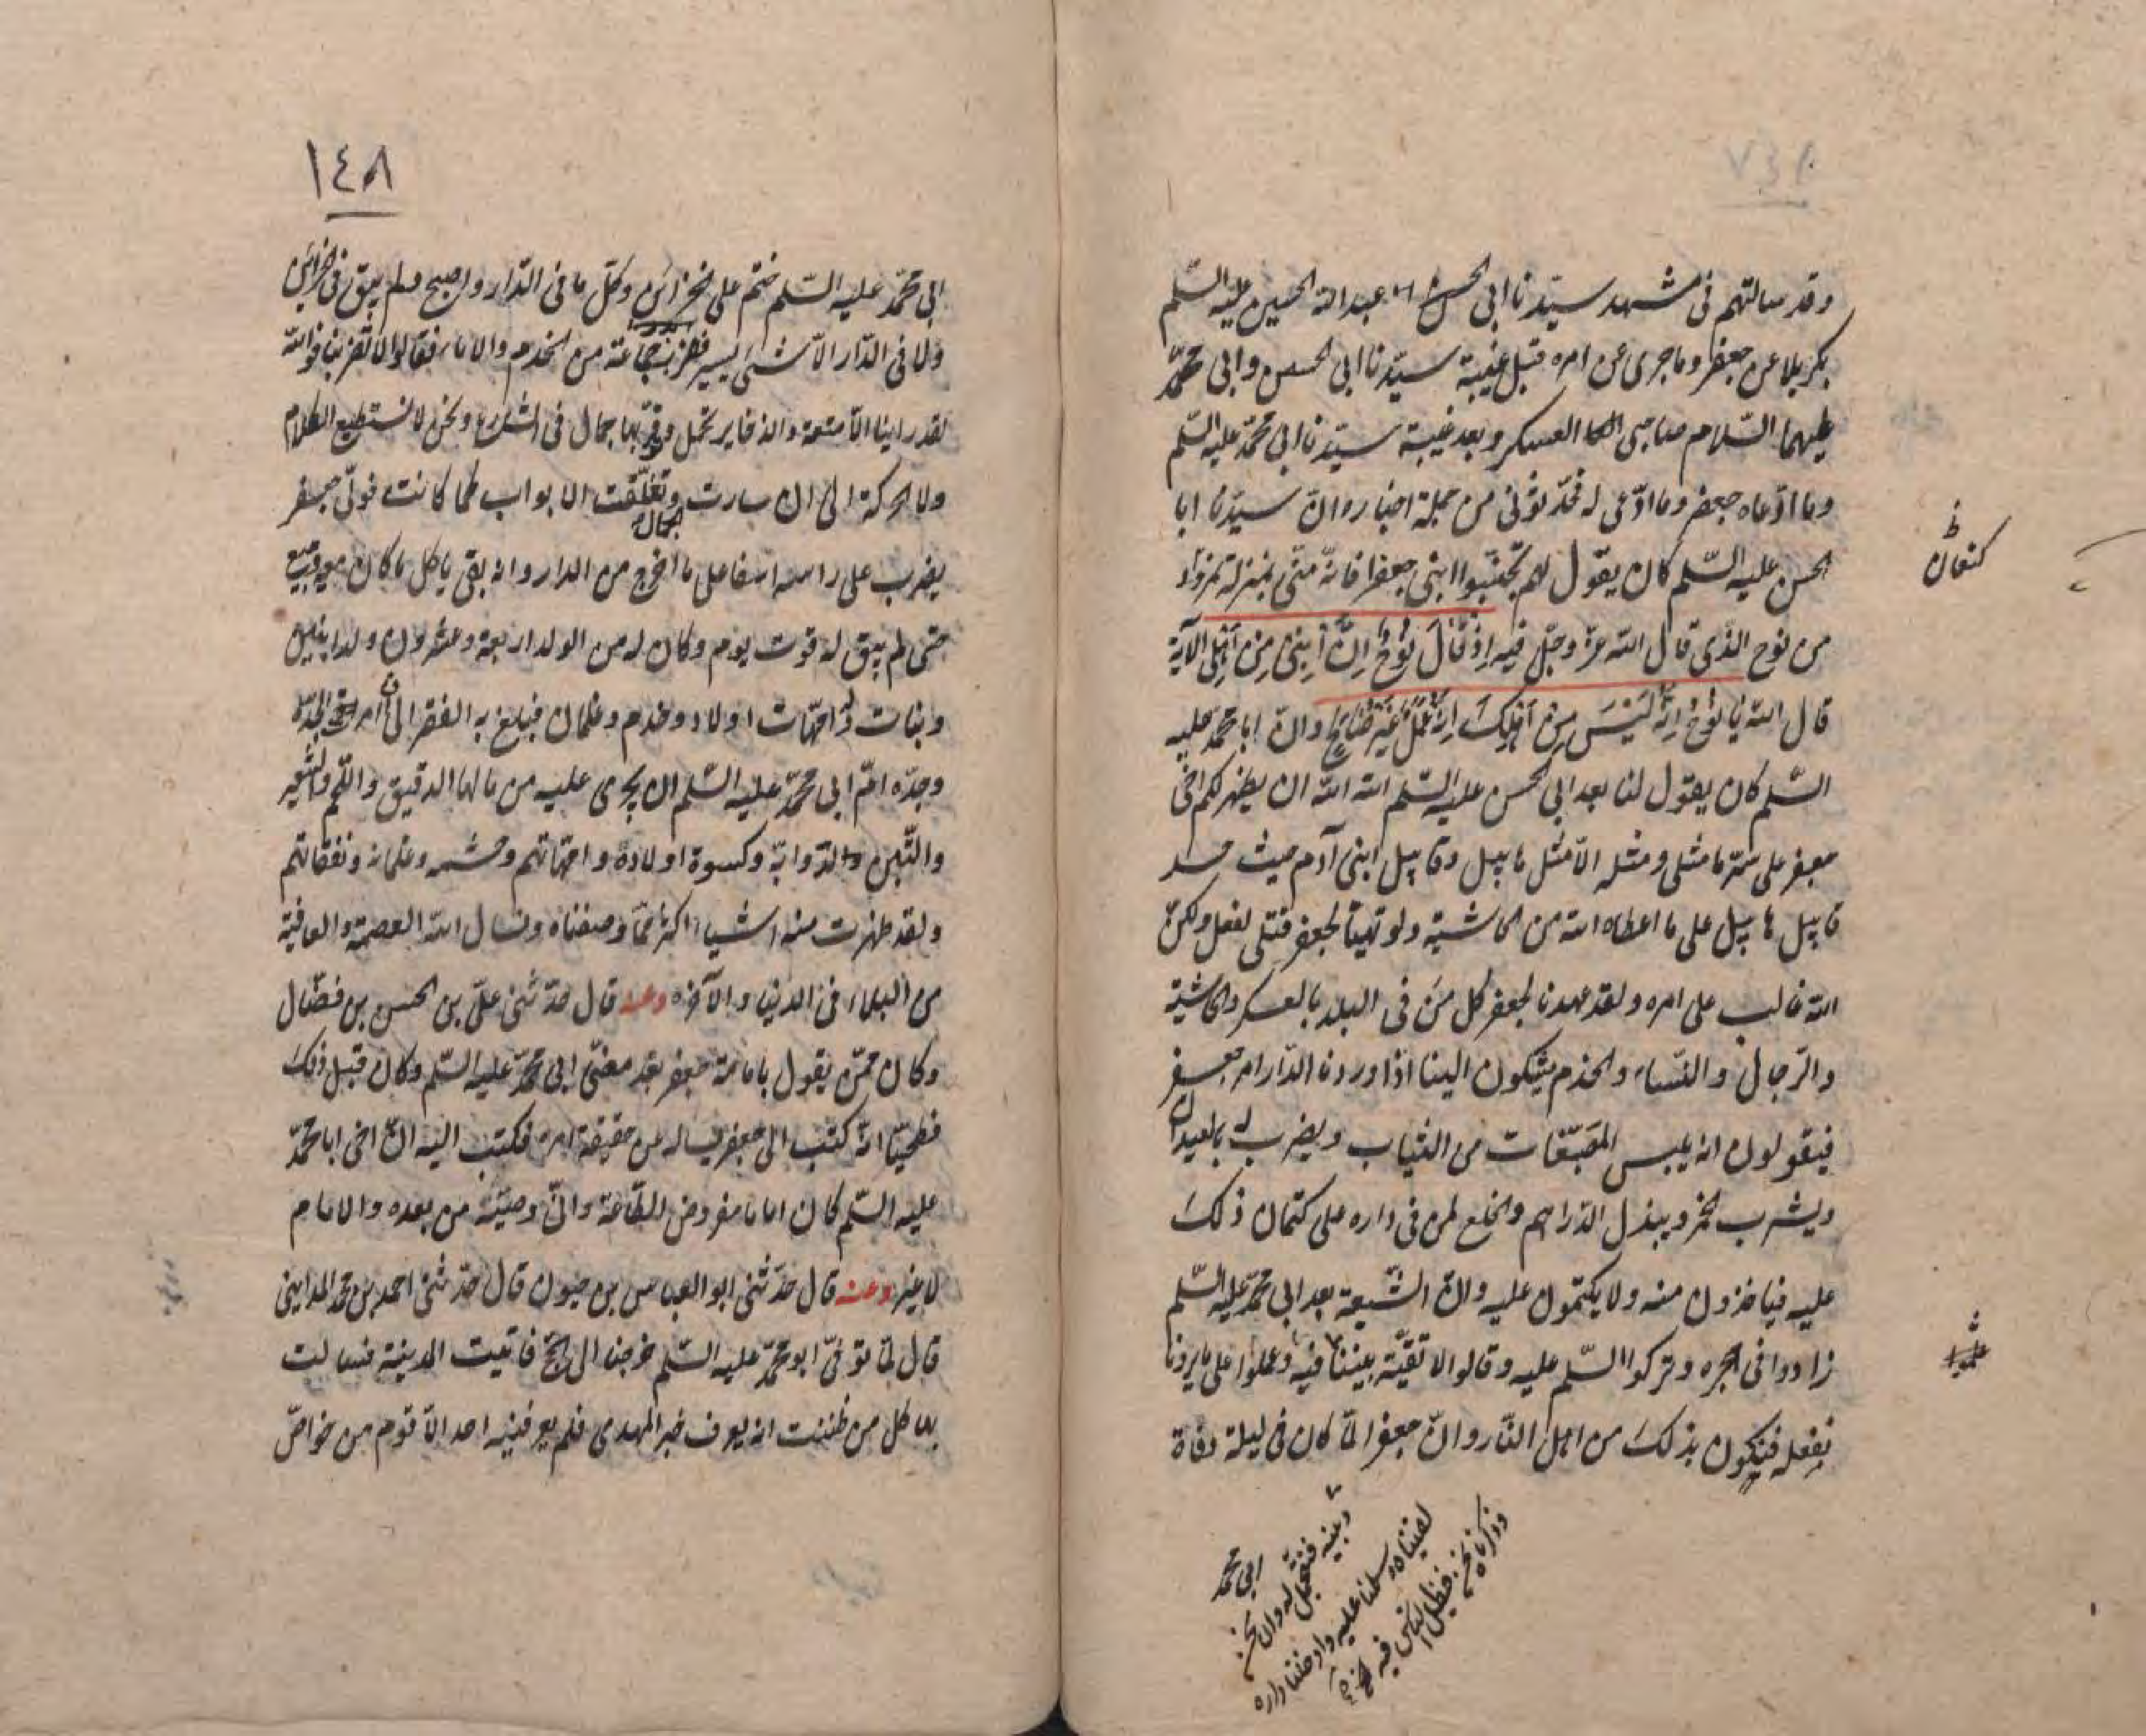 وقد سالتهم فى مشهد سيّدنا ابى عبد الله الحسين عليه السّلم
بكربلا عن جعفر وما جرى من امره قبل غيبة سيّدنا ابى الحسن وابى محمّد
عليهما السّلام صاحبى العسكر وبعد غيبة سيّدنا ابى محمّد عليه السّلم
وما ادّعاه جعفر وما ادّعى له فحدّثونى من جملة اخباره وانّ سيّدنا ابا
الحسن عليه السّلم كان يقول لهم تجنّبوا ابنى جعفرا فانّه منّى بمنزلة نمرود
كنعان
من نوح الّذى قال الله عزّ وجلّ فيه اذ قَالَ نُوحٌ اِنَّ ابنى مِن اَهلِى الآية
قال الله يَا نُوحُ اِنَّهُ لَيْسَ مِنْ اَهْلِكَ اِنَّهُ عَمَلٌ غَيْرُ صَالِحٍ وانّ ابا محمّد عليه
السّلم كان يقول لنا بعد ابى الحسن عليه السّلم الله الله ان يظهر لكم اخى
جعفر على سرّ ما مثلى ومثله الّا مثل هابيل وقابيل ابنى آدم حيث حسد
قابيل هابيل على ما اعطاه الله من ولو تهيّأ لجعفر قتلى لفعل ولكنّ
الله غالب على امره ولقد عهدنا لجعفر كل من فى البلد بالعسكر والحاشية
والرّجال والنّساء والخدم يشكون الينا اذا وردنا الدّار امر جعفر
فيقولون انه يلبس المصبّغات من الثياب ويضرب له بالعيدان
ويشرب الخمر ويبذل الدّراهم والخلع لمن فى داره على كتمان ذلك
عليه فياخذون منه ولا يكتمون عليه وانّ الشّيعة بعد ابى محمّد عليه السّلم
زادوا فى هجره وتركوا السّلم عليه وقالوا لا تقيّة بيننا وبينه
نفعله فنكون بذلك من اهل النّار وانّ جعفرا لمّا كان فى ليلة وفاة
وبينه فنتجمّل له وان نحن
لقيناه وسلمنا عليه وادخلنا داره
وذكرناه نحن فيضل الناس فيه
ابى محمّد
١٤٨
ابى محمّد عليه السّلم ختم على الخزائن وكلّ ما فى الدّار واصبح ولم يبق فى الخزائن
ولا فى الدّار الّا شىء يسير فضرب جماعة من الخدم والاماء فقالوا لا تضربنا فوالله
لقد راينا الأمتعة والذخاير تحمل وتوقر بها جمال فى الشارع ونحن لا نستطيع الكلام
ولا الحركة الى ان سارت الجمال وتغلّقت الابواب كما كانت فولّى جعفر
يضرب على راسه اسفا على ما اخرج من الدار وانه بقى ياكل ما كان معه ويبيع
حتى لم يبق له قوت يوم وكان له من الولد اربعة وعشرون ولدا بنين
وبنات وله امّهات اولاد وخدم وغلمان فبلغ به الفقر الى ان امرت الجدّة
وجدّه امّ ابى محمّد عليه السّلم ان يجرى عليه من مالها الدقيق واللّحم والشعير
والتّبن لدوابّه وكسوة اولاده وامّهاتهم وحشمه وغلمانه ونفقاتهم
ولقد ظهرت منه اشياء اكثر ممّا وصفناه ونسال الله العصمة والعافية
من البلاء فى الدنيا والآخره وعنه قال حدّثنى علىّ بن الحسن بن فضّال
وكان ممّن يقول بامامة جعفر بعد مضىّ ابى محمّد عليه السّلم وكان قبل ذلك
فطحيّا انّه كتب الى جعفر يساله عن حقيقة امره فكتب اليه انّ اخى ابا محمّد
عليه السّلم كان اماما مفروض الطّاعة وانّى وصيّه من بعده والامام
لا غير وعنه قال حدّثنى ابو العباس بن حيون قال حدّثنى احمد بن محمّد المداينى
قال لمّا توفّى ابو محمّد عليه السّلم خرجنا الى الحجّ فاتيت المدينة فسالت
بها كل من ظننت انه يعرف خبر المهدى فلم يعرفنيه احد الّا قوم من خواصّ